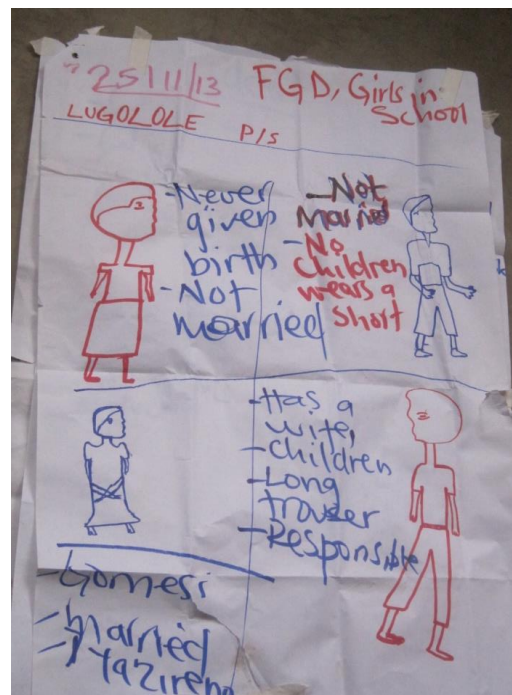 25/11/13
FGD, Girls in
School
LUGOLOLE P/S
-Never
given
birth
-Not
married
-Not
Married
-No
Children
wears a
short
-Has a
wife,
-Children
-Long
trouser
-Responsible
-Gomesi
-married